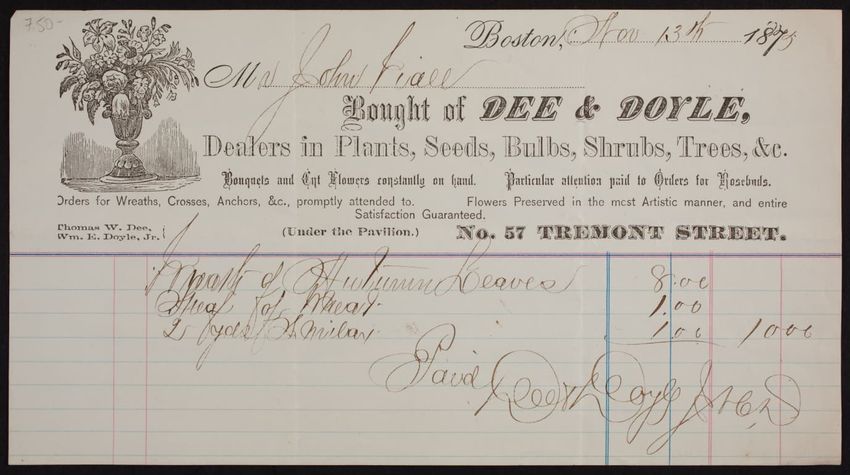 7.50-
Boston, Nov 13th 1875
Mr John Viall
Bought of DEE & DOYLE,
Dealers in Plants, Seeds, Bulbs, Shrubs, Trees, &c.
Bouquets and Cut Flowers constantly on hand. Particular attention paid to Orders for Rosebuds.
Orders for Wreaths, Crosses, Anchors, &c., promptly attended to. Flowers Preserved in the most Artistic manner, and entire
Satisfaction Guaranteed.
Thomas W. Dee,
Wm. E. Doyle, Jr.
(Under the Pavilion.) No. 57 TREMONT STREET.
Wreath of Autumn Leaves 8.00
Sheaf of Wheat 1.00
2 yds Smilax 1.00 10 00
Paid Dee & Doyle